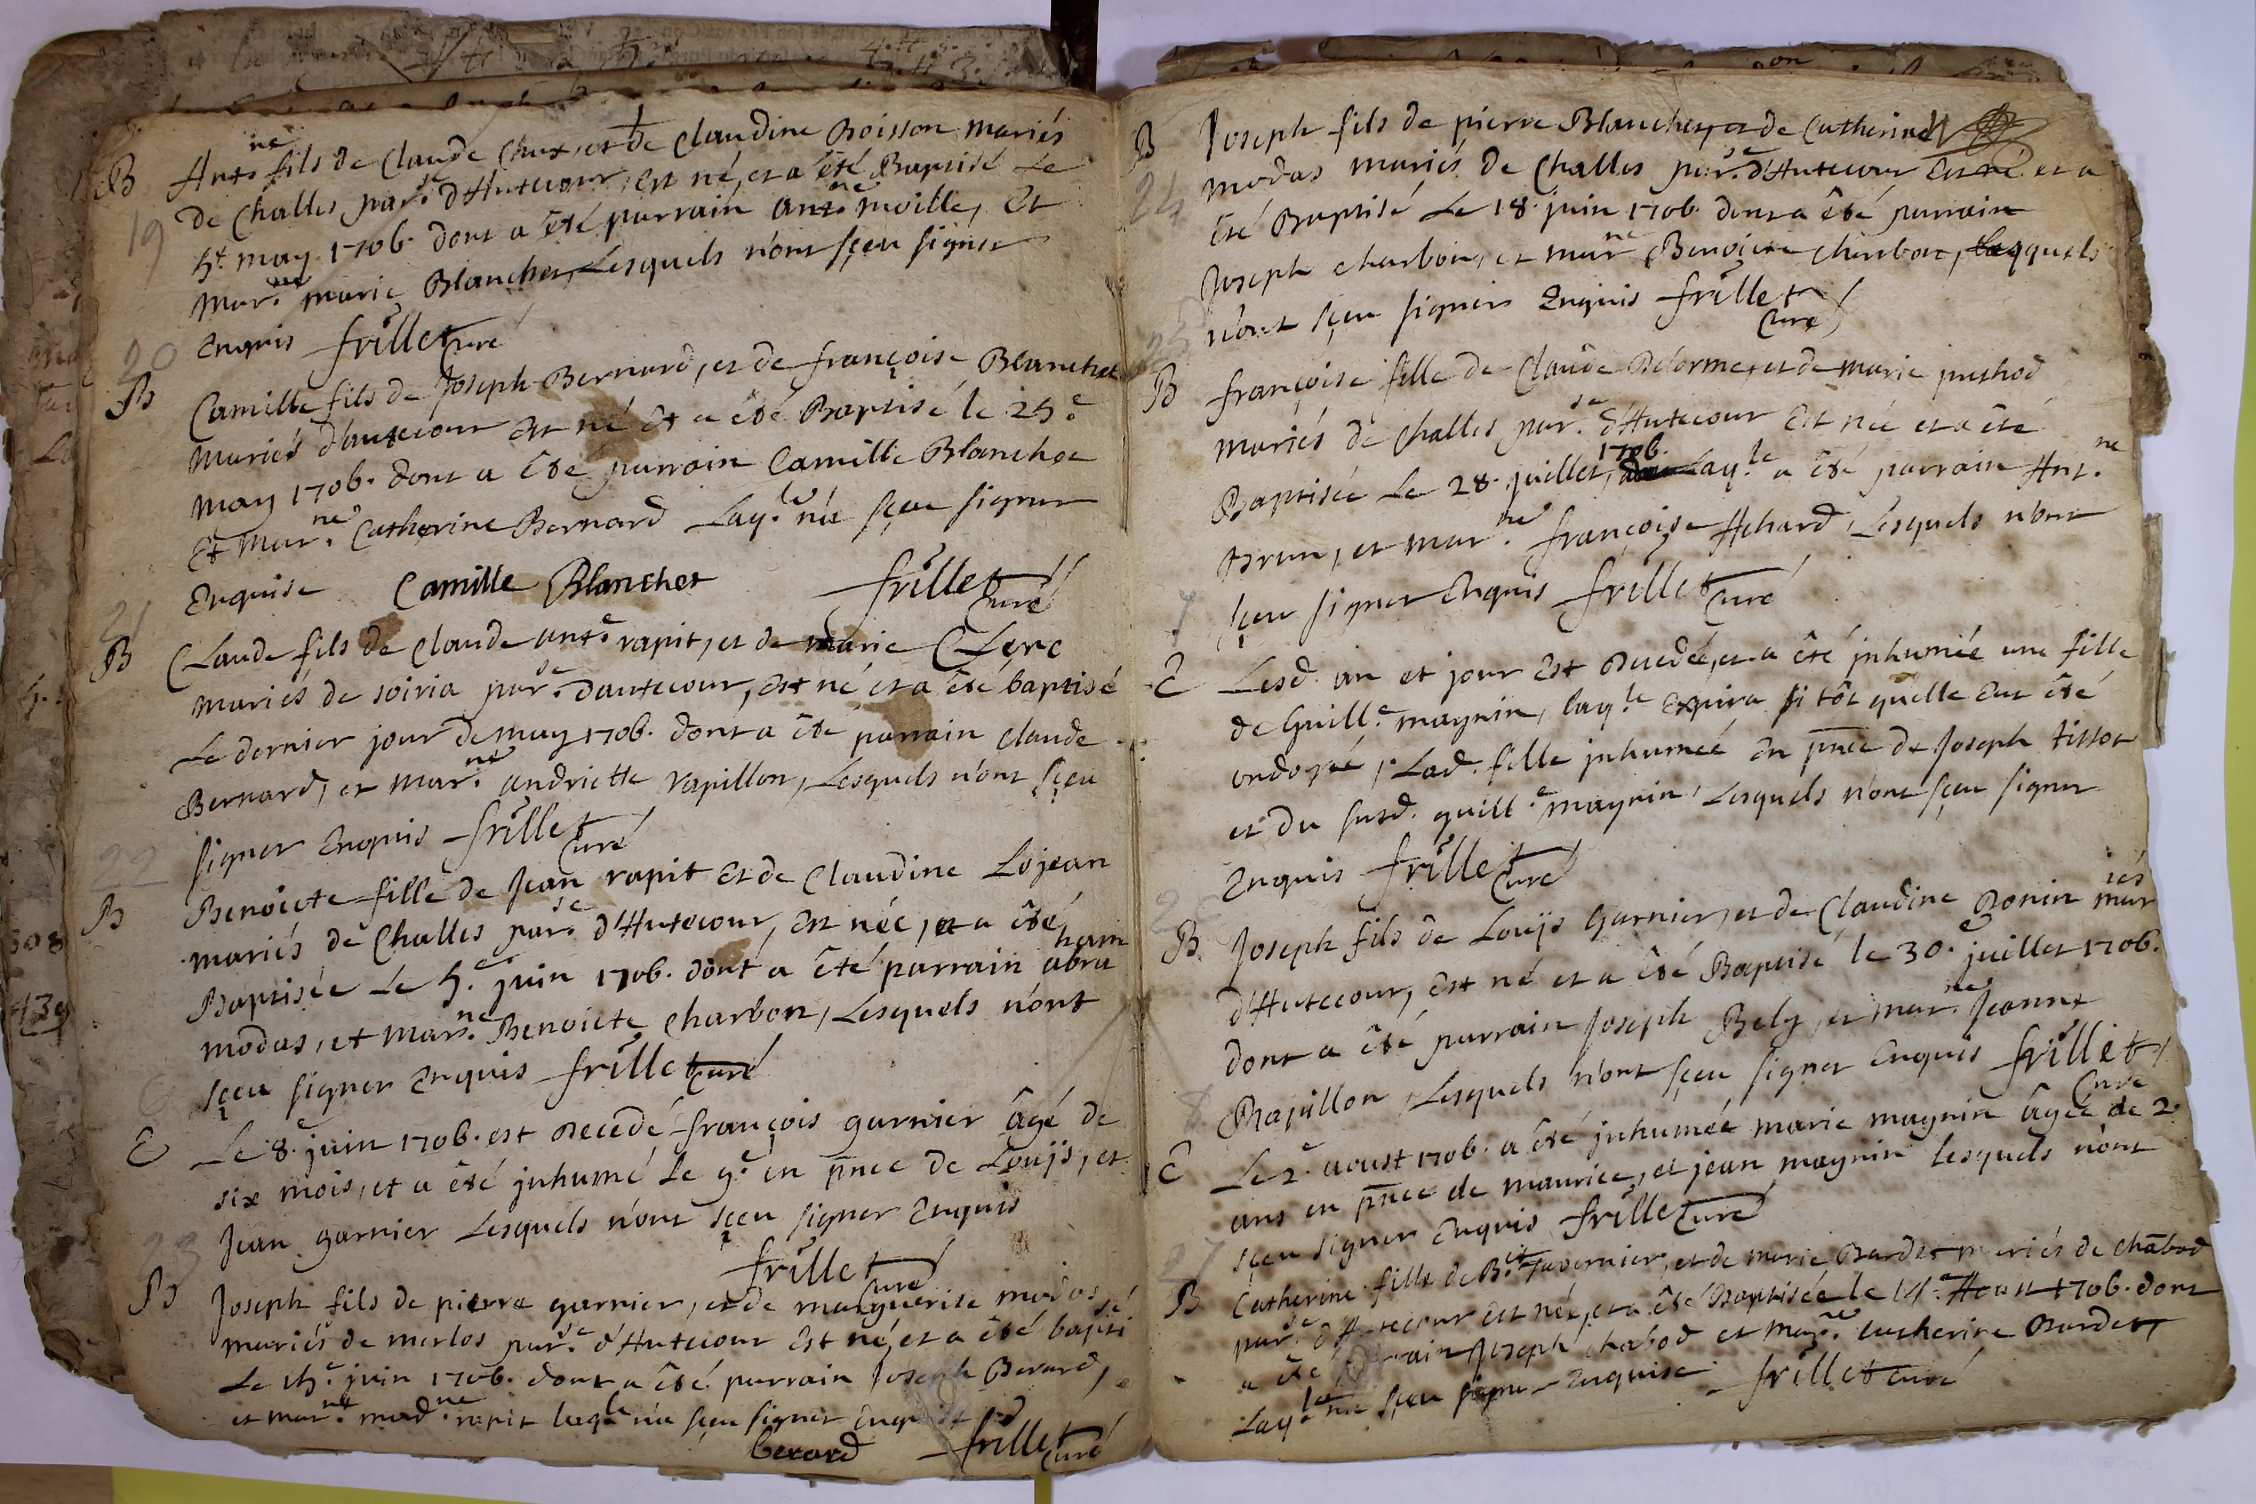 B Ant.ne fils de Claude Chat, et de Claudine Boisson mariés
19 de Challes par.se d'Hutecour, est né, et a été Baptisé Le
5.e may 1706. dont a été parrain ant.ne moille, Et
mar.ne marie Blanchet, Lesquels n'ont sçeu signer
Enquis frillet Curé
20
B Camille fils de Joseph Bernard, et de françoise Blanchet
mariés d'autecour Est né Et a été Baptisé le 25.e
may 1706. dont a été parrain Camille Blanchet
Et mar.ne Catherine Bernard Laq.le n'a sçeu signer
Enquise Camille Blanchet frillet Curé
21
B CLaude fils de Claude ant.e rapit, et de marie CLerc
mariés de soiria par.se d'autecour, Est né et a été baptisé
Le dernier jour de may 1706. dont a été parrain claude
Bernard, et mar.ne andriette rapillon, Lesquels n'ont sçeu
signer Enquis frillet Curé
22
B Benoicte fille de Jean rapit Et de Claudine Lojean
mariés de Challes par.se d'Hutecour, Est née, et a été
Baptisée Le 5.e juin 1706. dont a été parrain abraham
modas, et mar.ne Benoicte charbon, Lesquels n'ont
sçeu signer Enquis frillet Curé
6
E Le 8.e juin 1706. est Decedé françois garnier âgé de
six mois, et a été jnhumé Le 9.e en pñce de Louÿs, et
Jean garnier Lesquels n'ont sçeu signer Enquis
frillet Curé
23
B Joseph fils de pierre garnier, et de marguerite modas
mariés de merlos par.se d'Hutecour Est né, et a été baptisé
Le 15.e juin 1706. dont a été parrain Joseph Berard,
et mar.ne mad.ne rapit laq.le n'a sçeu signer Enquise
berard frillet Curé
B Joseph fils de pierre Blanchet, et de Catherine
24 modas mariés de Challes par.se d'Hutecour Est né et a
été Baptisé Le 18. juin 1706. dont a été parrain
Joseph charbon, et mar.ne Benoicte charbon, Lesquels
n'ont sçeu signer Enquis frillet Curé
25
B françoise fille de Claude Delorme, et de marie puthod
mariés de Challes par.se d'Hutecour Est née et a été
Baptisée Le 28. juillet, 1706. Laq.le a été parrain Ant.ne
Brun, et mar.ne françoise Achard, Lesquels n'ont
sçeu signer Enquis frillet Curé
7
E Lesd. an et jour Est Decedée, et a été jnhumée une fille
de Guill.e maynin, laq.le Expira si tôt qu'elle Eut été
ondoyée, Lad. fille jnhumée En pñce de Joseph tissot
et du susd. guill.e maynin, Lesquels n'ont sçeu signer
Enquis frillet Curé
B Joseph fils de Louÿs Garnier, et de Claudine Bonin mariés
d'Hutecour, Est né et a été Baptisé le 30.e juillet 1706.
dont a été parrain Joseph Bely, et mar.ne Jeanne
Rapillon, Lesquels n'ont sçeu signer Enquis frillet Curé
8
E Le 2.e aoust 1706. a été jnhumée marie maynin âgée de 2.
ans en pñce de maurice, et jean maynin Lesquels n'ont
sçeu signer Enquis frillet Curé
27
B Catherine fille de B.t Tavernier, et de marie Bardet mariés de chãbod
par.se d'Hutecour Est née, et a été Baptisée Le Aoust 1706. dont
a été parrain Joseph chabod et mar.ne catherine Bardet,
Laq.le n'a sçeu signer Enquise frillet Curé